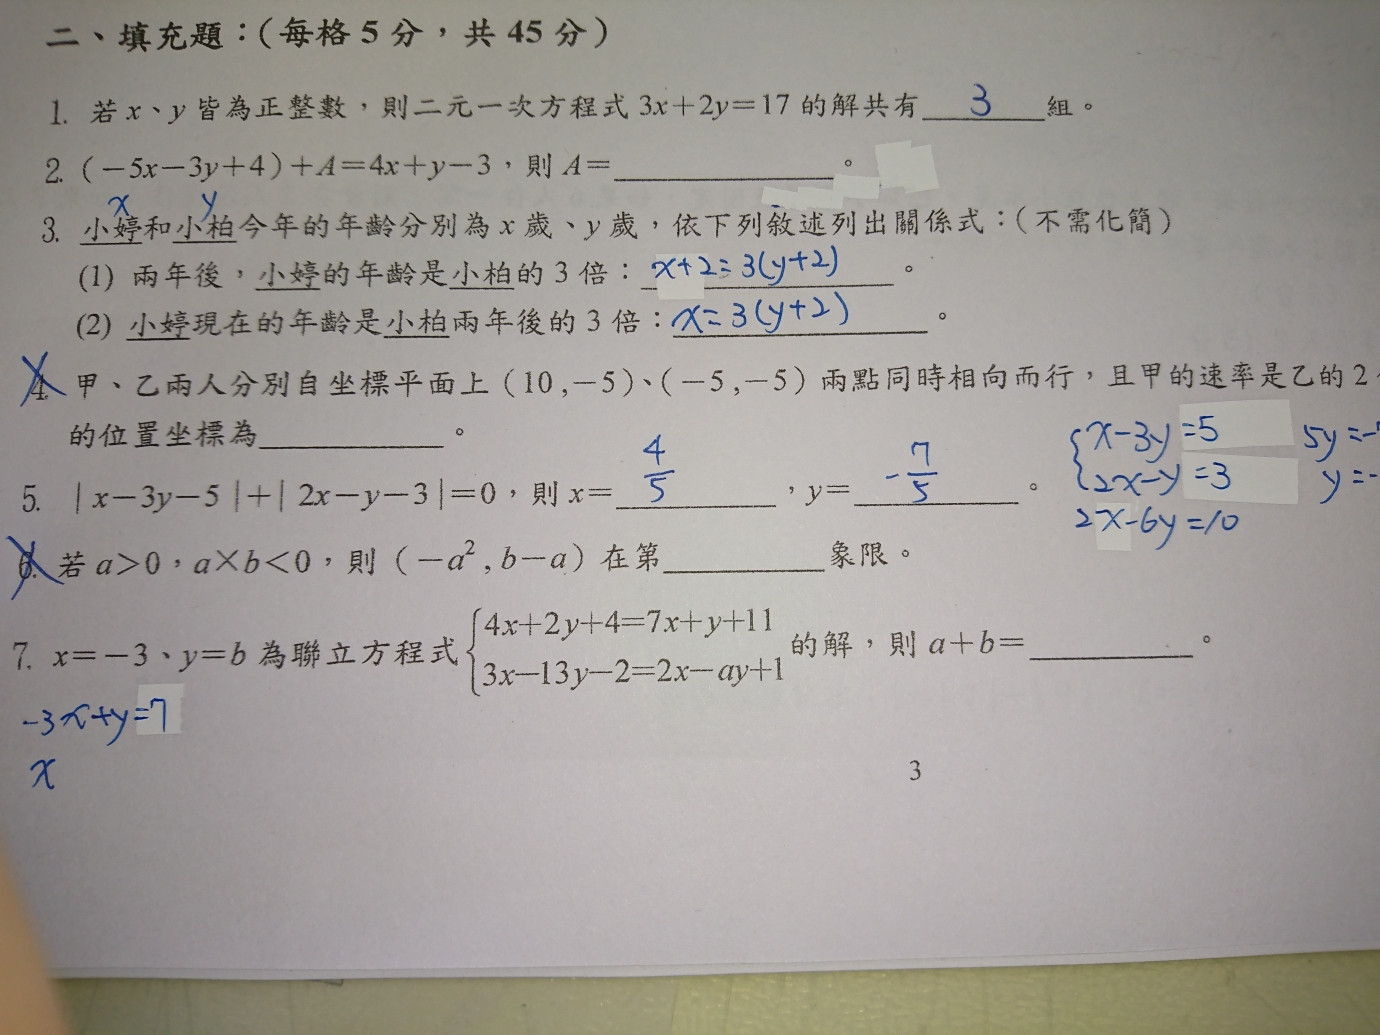 二、填充題：（每格 5 分，共 45 分）
1. 若 x、y 皆為正整數，則二元一次方程式 3x＋2y＝17 的解共有 3 組。
2. (－5x－3y＋4)＋A＝4x＋y－3，則 A＝________。
x y
3. 小婷和小柏今年的年齡分別為 x 歲、y 歲，依下列敘述列出關係式：（不需化簡）
(1) 兩年後，小婷的年齡是小柏的 3 倍：x+2=3(y+2)。
(2) 小婷現在的年齡是小柏兩年後的 3 倍：x=3(y+2)。
4. 甲、乙兩人分別自坐標平面上 (10 ,－5)、(－5 ,－5) 兩點同時相向而行，且甲的速率是乙的 2
的位置坐標為________。
5. │x－3y－5│＋│2x－y－3│＝0，則 x＝ 4/5 ，y＝ -7/5 。
x-3y=5 5y=-
2x-y=3 y=-
2x-6y=10
6. 若 a＞0，a×b＜0，則 (－a², b－a) 在第________象限。
7. x＝－3、y＝b 為聯立方程式 { 4x＋2y＋4＝7x＋y＋11
3x－13y－2＝2x－ay＋1 的解，則 a＋b＝________。
-3x+y=7
x
3